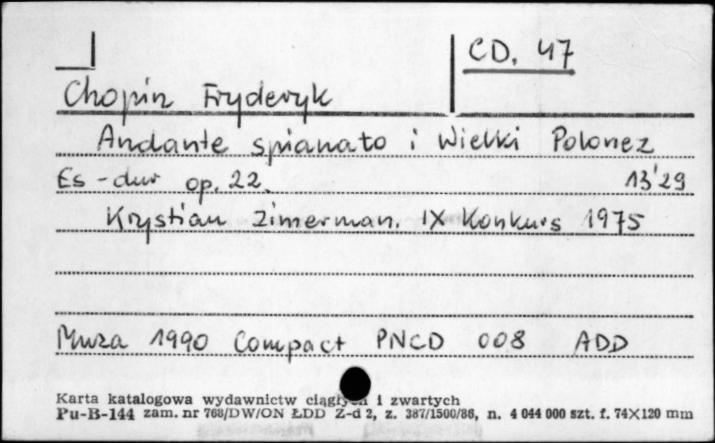 CD. 47
Chopin Fryderyk
Andante spianato i Wielki Polonez
Es-dur op. 22. 13'29
Krystian Zimerman. IX Konkurs 1975
Muza 1990 Compact PNCD 008 ADD
Karta katalogowa wydawnictw ciągłych i zwartych
Pu-B-144 zam. nr 768/DW/ON ŁDD Z-d 2, z. 387/1500/86, n. 4 044 000 szt. f. 74×120 mm